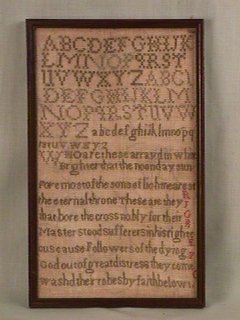 ABCDEFGHIJK
LMNOPQRST
UVWXYZ ABCD
EFGHIJKLM
NOPQRSTUVW
XYZ abcdefghiklmnopq
rstuvwxyz
Who are these arrayd in whit
Brighter that the noonday sun
Foremost of the sons of light nearest
the eternal throne These are they
that bore the cross nobly for their
Master stood sufferers in his righte
ous cause Followers of the dying
God out of great distress they came
washd their robes by faith below in